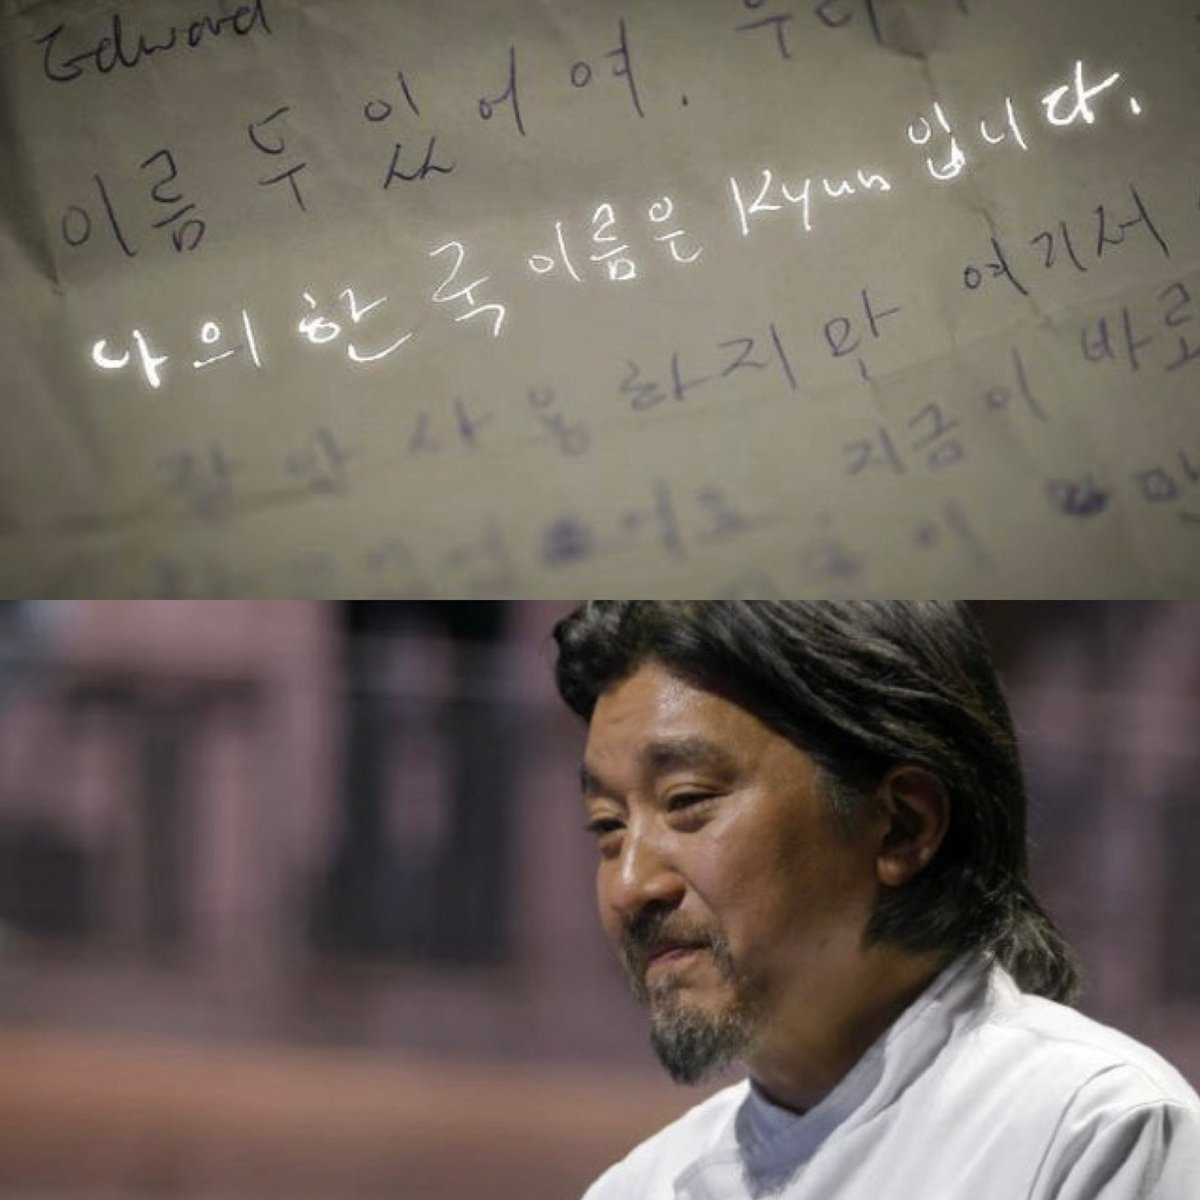 Edward
이름 두 있어여. 우리
나의 한국 이름은 Kyun 입니다.
잘 안 사용 하지만 여기서
지금이 바로